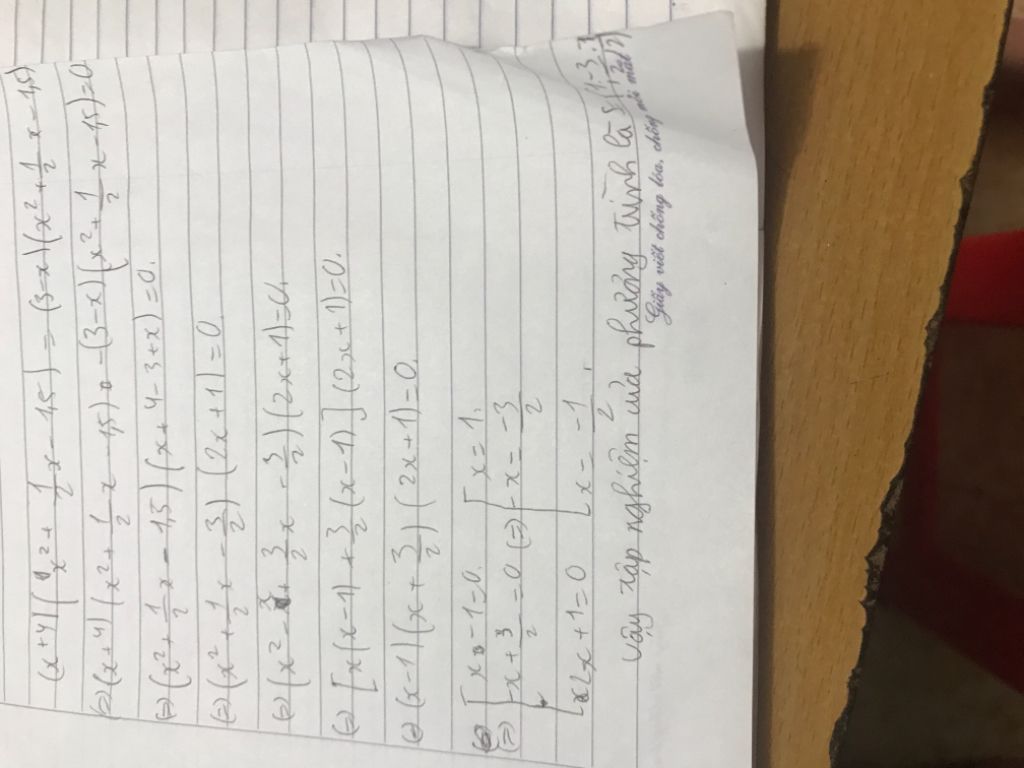 (x+4)(x²+1/2x-1,5) = (3-x)(x²+1/2x-1,5)
(=) (x+4)(x²+1/2x-1,5) - (3-x)(x²+1/2x-1,5)=0
(=) (x²+1/2x-1,5)(x+4-3+x)=0.
(=) (x²+1/2x-3/2)(2x+1)=0
(=) (x²-x+3/2x-3/2)(2x+1)=0.
(=) [x(x-1)+3/2(x-1)](2x+1)=0.
(=) (x-1)(x+3/2)(2x+1)=0.
(=) [x-1=0. [x=1.
[x+3/2=0 (=) [x=-3/2
[2x+1=0 [x=-1/2.
Vậy tập nghiệm của phương trình là S
Giấy viết chống lóa, chống mỏi mắt